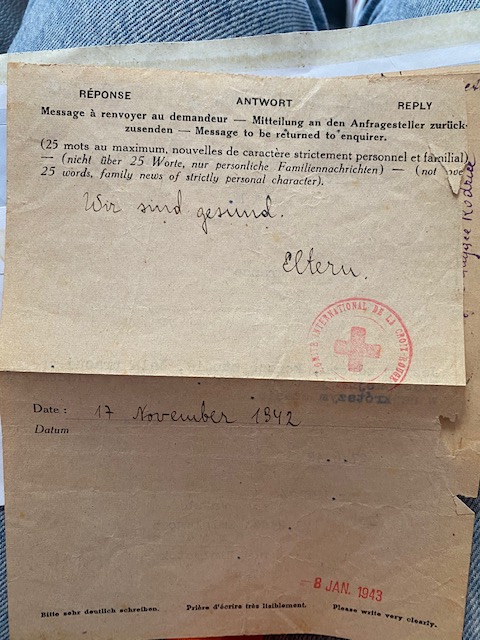 RÉPONSE ANTWORT REPLY
Message à renvoyer au demandeur — Mitteilung an den Anfragesteller zurück-
zusenden — Message to be returned to enquirer.
(25 mots au maximum, nouvelles de caractère strictement personnel et familial)
— (nicht über 25 Worte, nur persönliche Familiennachrichten) — (not over
25 words, family news of strictly personal character).
Wir sind gesund.
Eltern.
COMITÉ INTERNATIONAL DE LA CROIX-ROUGE
Date : 17 November 1942
Datum
- 8 JAN. 1943
Bitte sehr deutlich schreiben. Prière d'écrire très lisiblement. Please write very clearly.